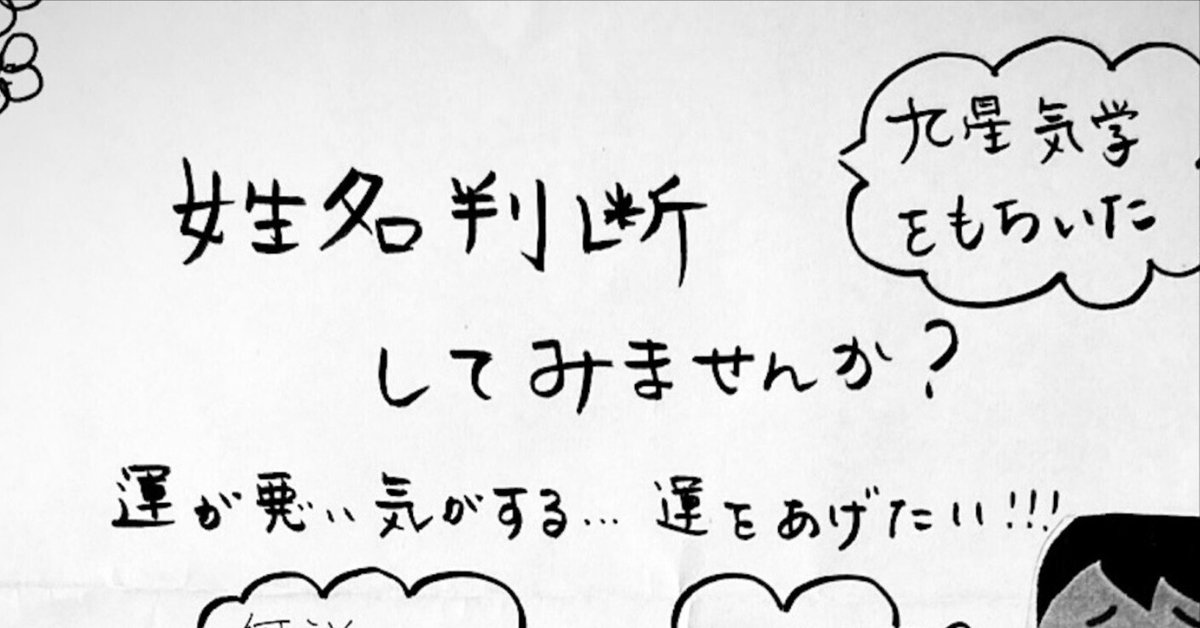 九星気学
をもちいた
姓名判断
してみませんか?
運が悪い気がする... 運をあげたい!!!